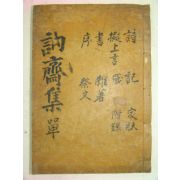 詩 記 家狀
上言
書 雜著
序 祭文
訥齋集 單